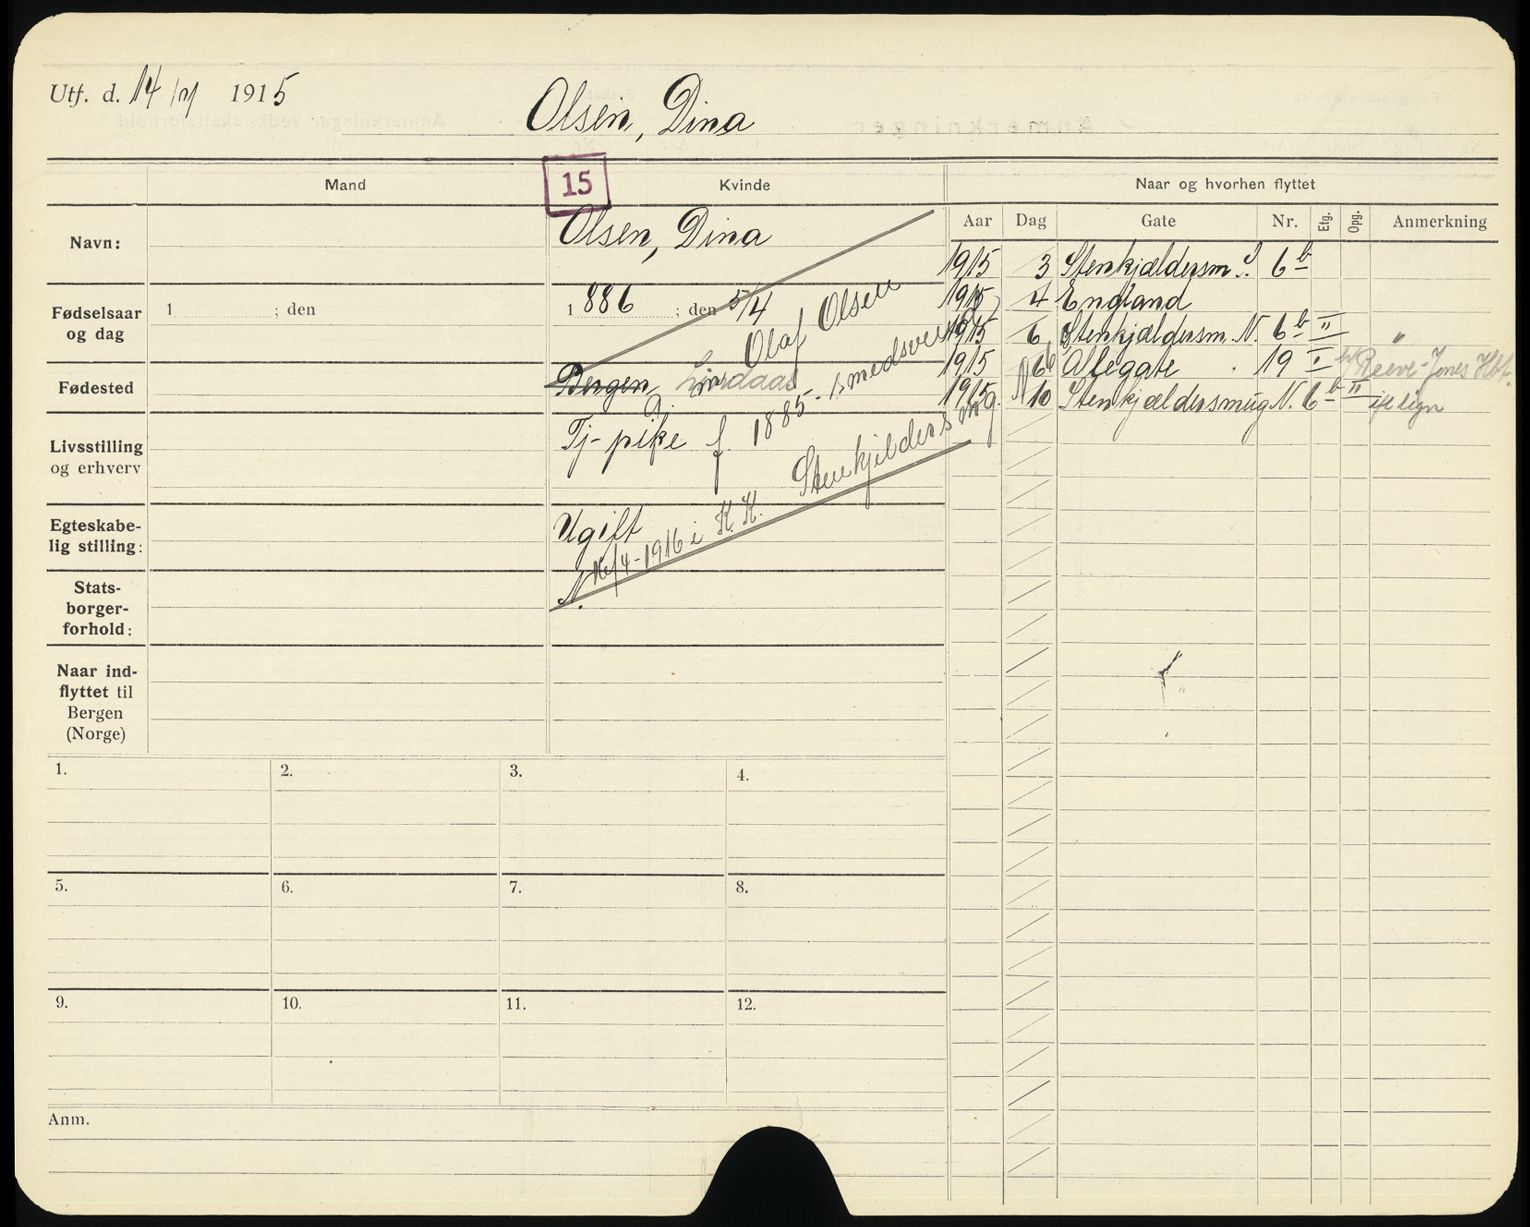 Utf. d. 14/ 1915
Olsen, Dina
Mand
15
Kvinde
Naar og hvorhen flyttet
Aar Dag Gate Nr. Etg. Opg. Anmerkning
Navn:
Olsen, Dina
1915 3 Stenkjældersm. S. 6b
Fødselsaar og dag
1 ; den
1886 ; den 5/4
1915 4 England
1915 6 Stenkjældersm. N. 6b II "
Fødested
Bergen,
1915 6 Allegate 19 I Reeve-Jones
1915 10 Stenkjældersmug N. 6b II
Livsstilling og erhverv
Tj-pike
Egteskabelig stilling:
Ugift
N. /4-1916 i K.K.
Olaf Olsen
f. 1885. smedsvend
Stenkjeldersmug
Statsborgerforhold:
Naar indflyttet til Bergen (Norge)
1. 2. 3. 4.
5. 6. 7. 8.
9. 10. 11. 12.
Anm.